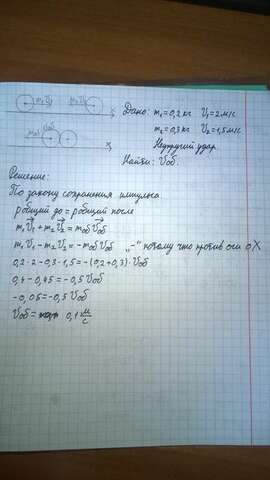 m₁V₁ m₂V₂ x
Дано: m₁=0,2 кг V₁=2 м/с
m₂=0,3 кг V₂=1,5 м/с
Неупругий удар
mоб Vоб x
Найти: Vоб.
Решение:
По закону сохранения импульса
pобщий до = pобщий после
m₁V₁ + m₂V₂ = mобVоб
m₁V₁ - m₂V₂ = -mобVоб „-" потому что против оси оХ
0,2·2 - 0,3·1,5 = -(0,2+0,3)·Vоб
0,4 - 0,45 = -0,5Vоб
-0,05 = -0,5Vоб
Vоб = 0,1 м/с